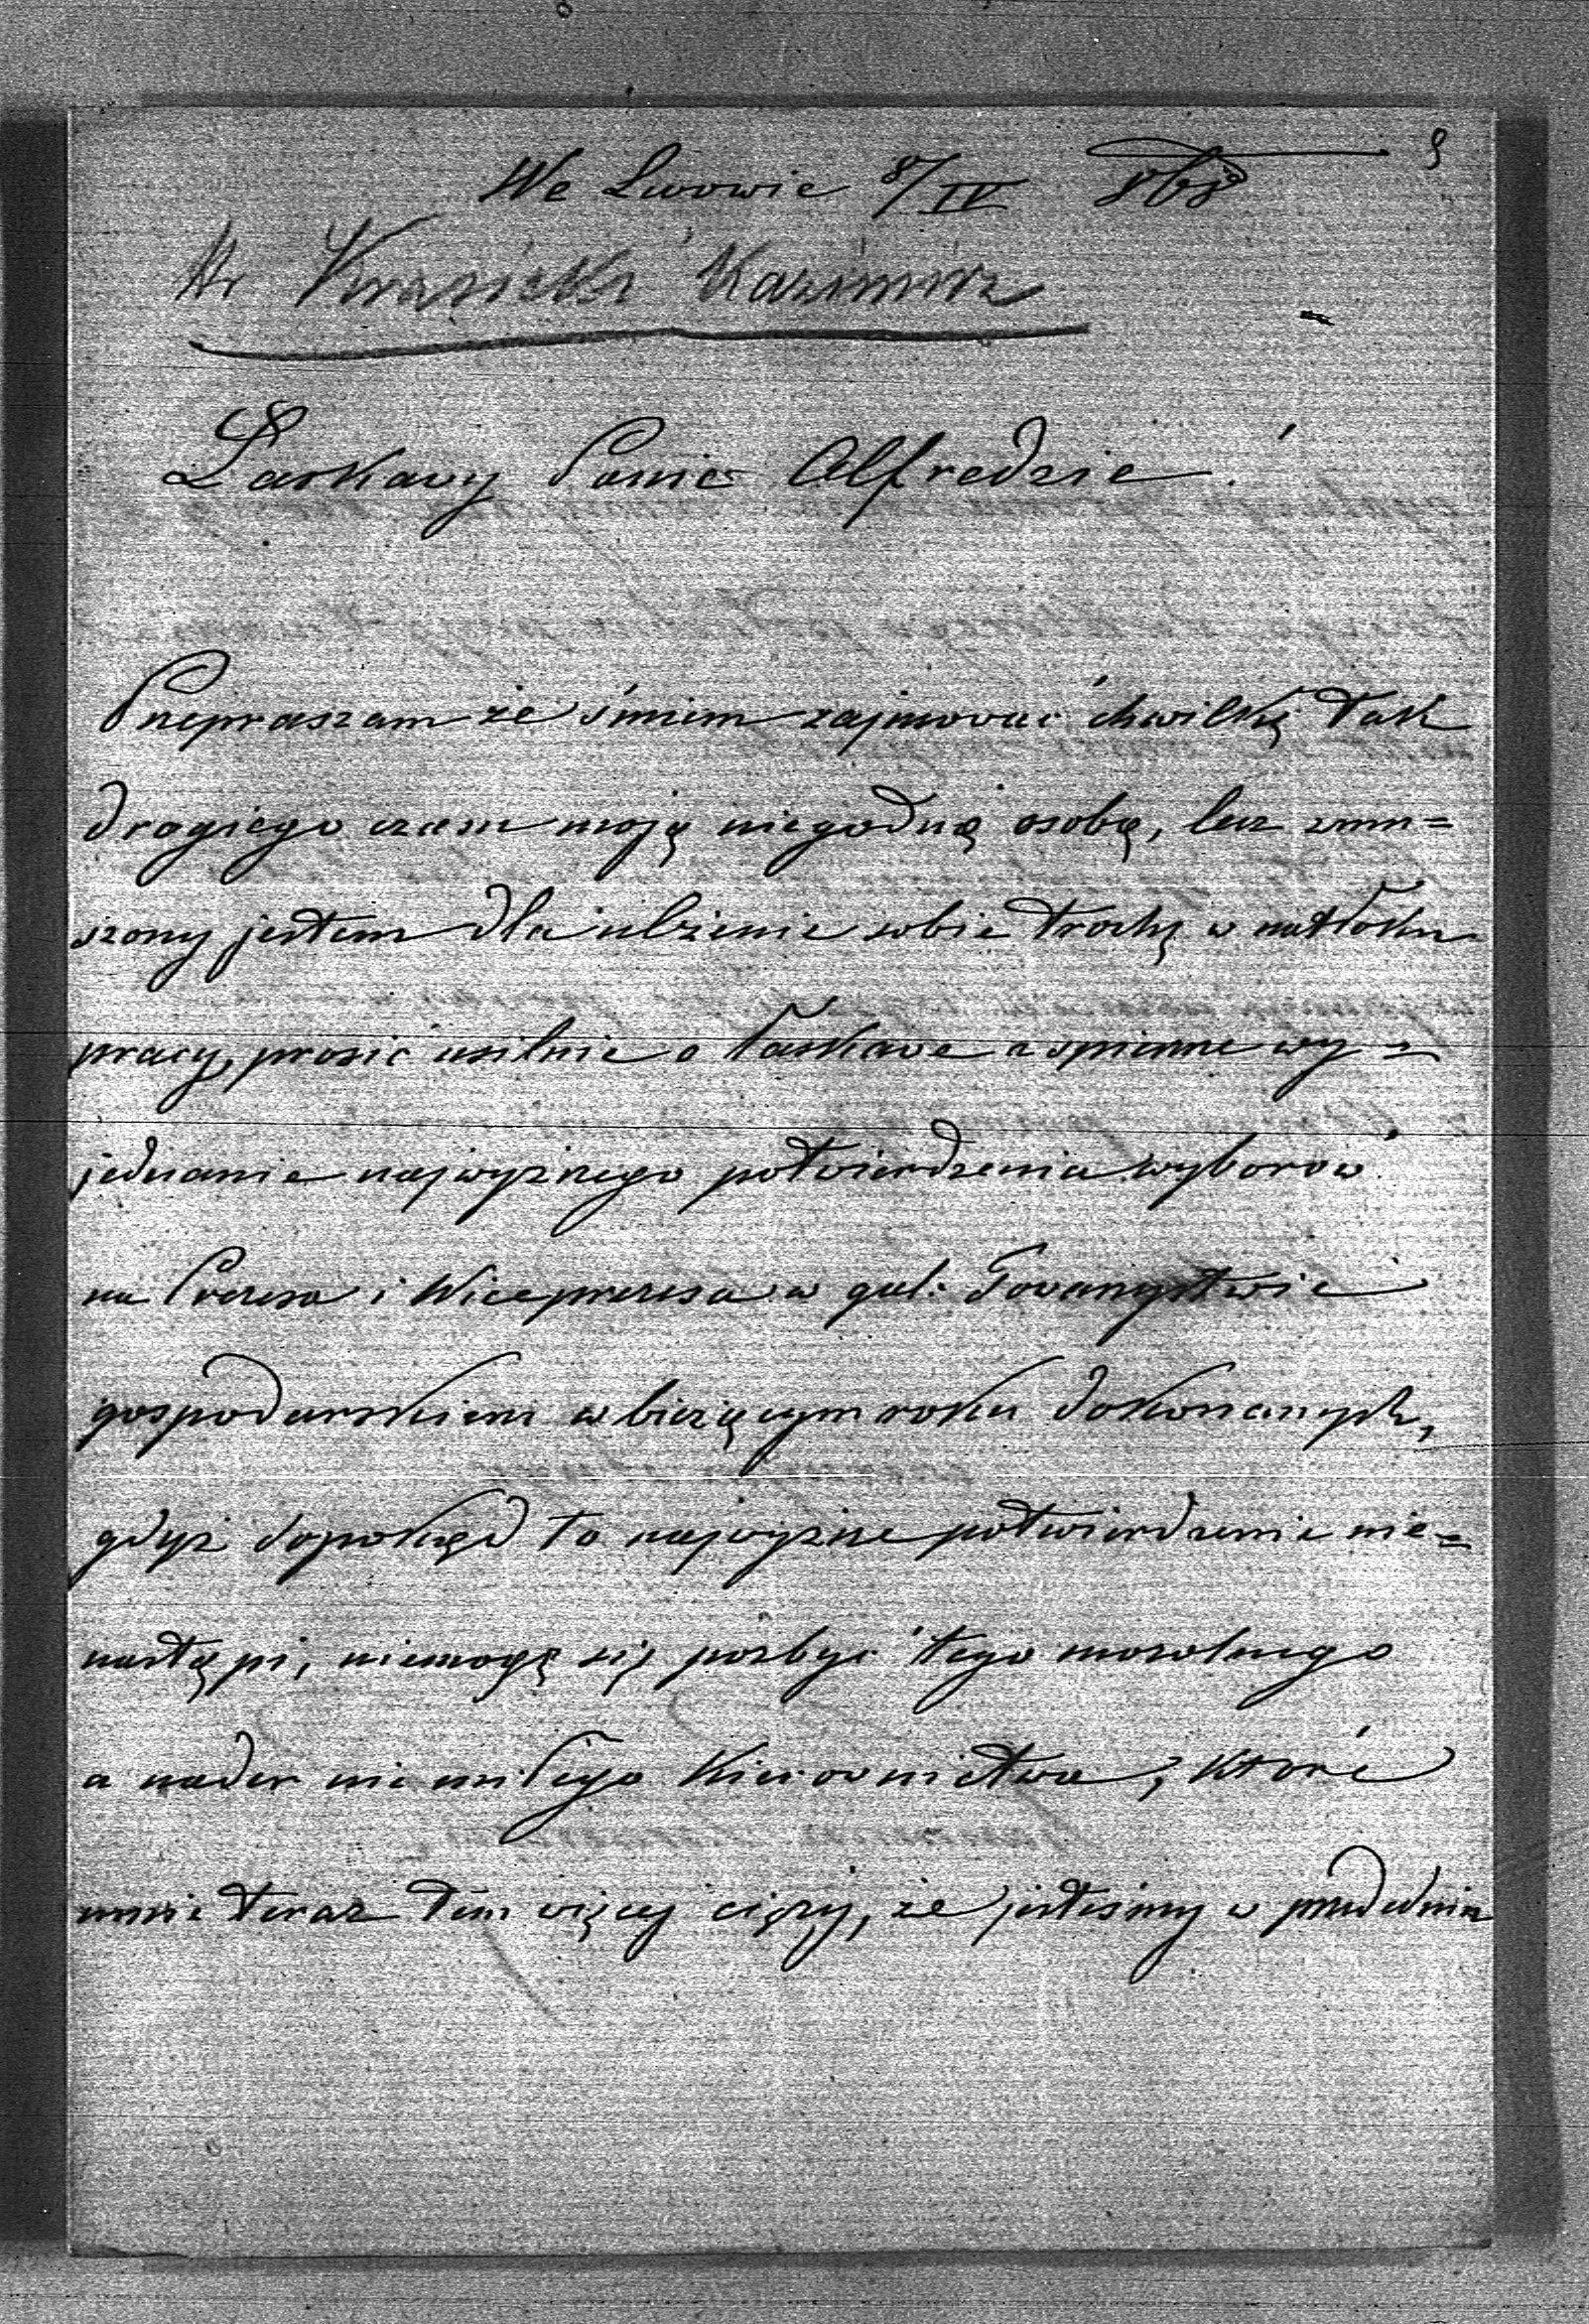 We Lwowie 8/IV 868
9
Hr Krasicki Kazimirz
Łaskawy Panie Alfredzie!
Przepraszam że śmiem zajmować chwilkę tak
drogiego czasu moją niegodną osobą, lecz zmu=
szony jestem dla ulżenie sobie trochę w natłoku
pracy, prosić usilnie o łaskawe a spieszne wy=
jednanie najwyższego potwierdzenia wyborów
na Prezesa i Wiceprezesa w gal: Towarzystwie
gospodarskiem w bieżącym roku dokonanych,
gdyż dopokąd to najwyższe potwierdzenie nie=
nastąpi, niemogę się pozbyć tego mozolnego
a nader nie miłego Kierownictwa, które
mnie teraz tem więcej cięży, że jesteśmy w przededniu